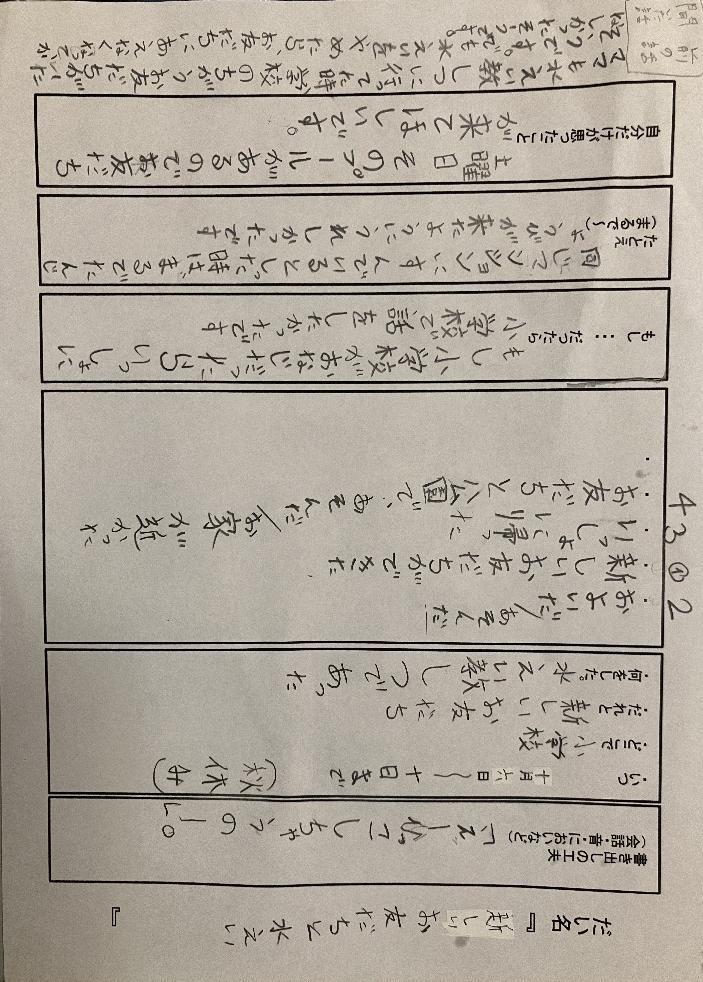 だい名『新しいお友だちと水えい』
書き出しの工夫
（会話・音・においなど）
「えー引っこしちゃうの」。
・いつ 十月六日〜十日まで（秋休み）
・どこで 小学校
・だれと 新しいお友だち
・何をした。 水えい教しつであった
2
・およいだ/あそんだ
①
・新しいお友だちができた
3
・いっしょに帰ったり
4
・お友だちと公園で、あそんだ/お家が近かった
・
もし…だったら
もし小学校がおなじだったらいっしょに
小学校で話をしたかったです
たとえ
（まるで〜）
同じマンションにすんでいるとしった時は、まるでたんじ
ょうびが来たようにうれしかったです
自分だけが思ったこと
土曜日そのプールがあるのでお友だち
が来てほしいです。
前の話
聞いた話
ママも水えい教しつに行ってた時学校のちがうお友だちがいた
です。でも水えいをやめたらお友だちにあえなくなってか
しかったそうです。